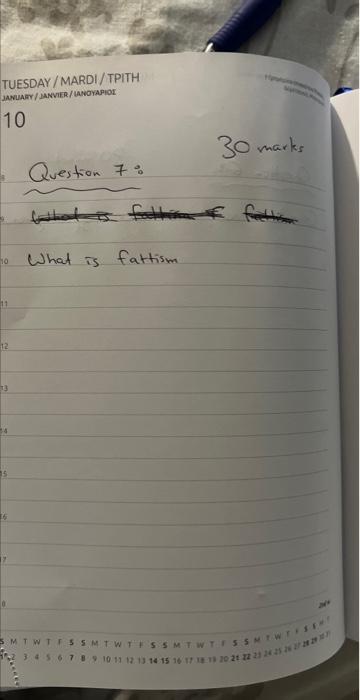 TUESDAY / MARDI / ΤΡΙΤΗ
JANUARY / JANVIER / ΙΑΝΟΥΑΡΙΟΣ
10
30 marks
8
Question 7:
9
What is fattism
10 What is fattism
11
12
13
14
15
16
17
S M T W T F S S M T W T F S S M T W T F S S M T W T F S S M T
1 2 3 4 5 6 7 8 9 10 11 12 13 14 15 16 17 18 19 20 21 22 23 24 25 26 27 28 29 30 31